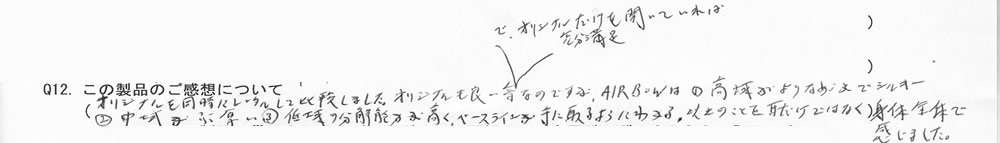 で、オリジナルだけを聞いていれば
充分満足
)
)
Q12. この製品のご感想について
オリジナルを同時にレンタルして比較しました。オリジナルも良い音なのですが、AIRBOWは ① 高域がよりなめらかでシルキー
(② 中域がぶ厚い ③ 低域の分解能力が高く、ベースラインが手に取るようにわかる。以上のことを耳だけではなく) 身体全体で
感じました。